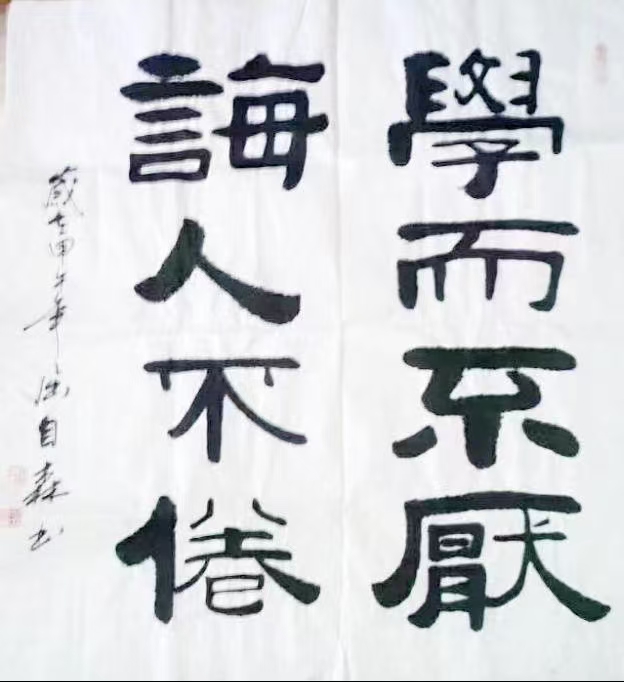 學而不厭
誨人不倦
歲在甲午年
自森书